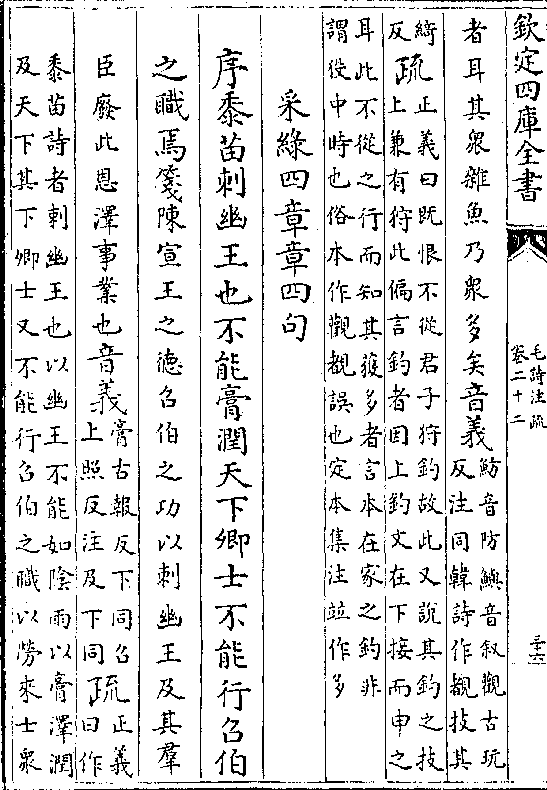 欽定四庫全書
毛詩注疏
卷二十二
三十六
者耳其衆雜魚乃衆多矣音義
魴音防鱮音叙觀古玩
反注同韓詩作覩技其
綺
疏
正義曰既恨不從君子狩釣故此又說其釣之技
反
上兼有狩此偏言釣者因上釣文在下接而申之
耳此不從之行而知其獲多者言本在家之釣非
謂役中時也俗本作觀覩誤也定本集注並作多
采綠四章章四句
序黍苗刺幽王也不能膏潤天下卿士不能行召伯
之職焉箋陳宣王之德召伯之功以刺幽王及其羣
臣廢此恩澤事業也音義
膏古報反下同召
上照反注及下同
疏
正義
曰作
黍苗詩者刺幽王也以幽王不能如隂雨以膏澤潤
及天下其下卿士又不能行召伯之職以勞來士衆